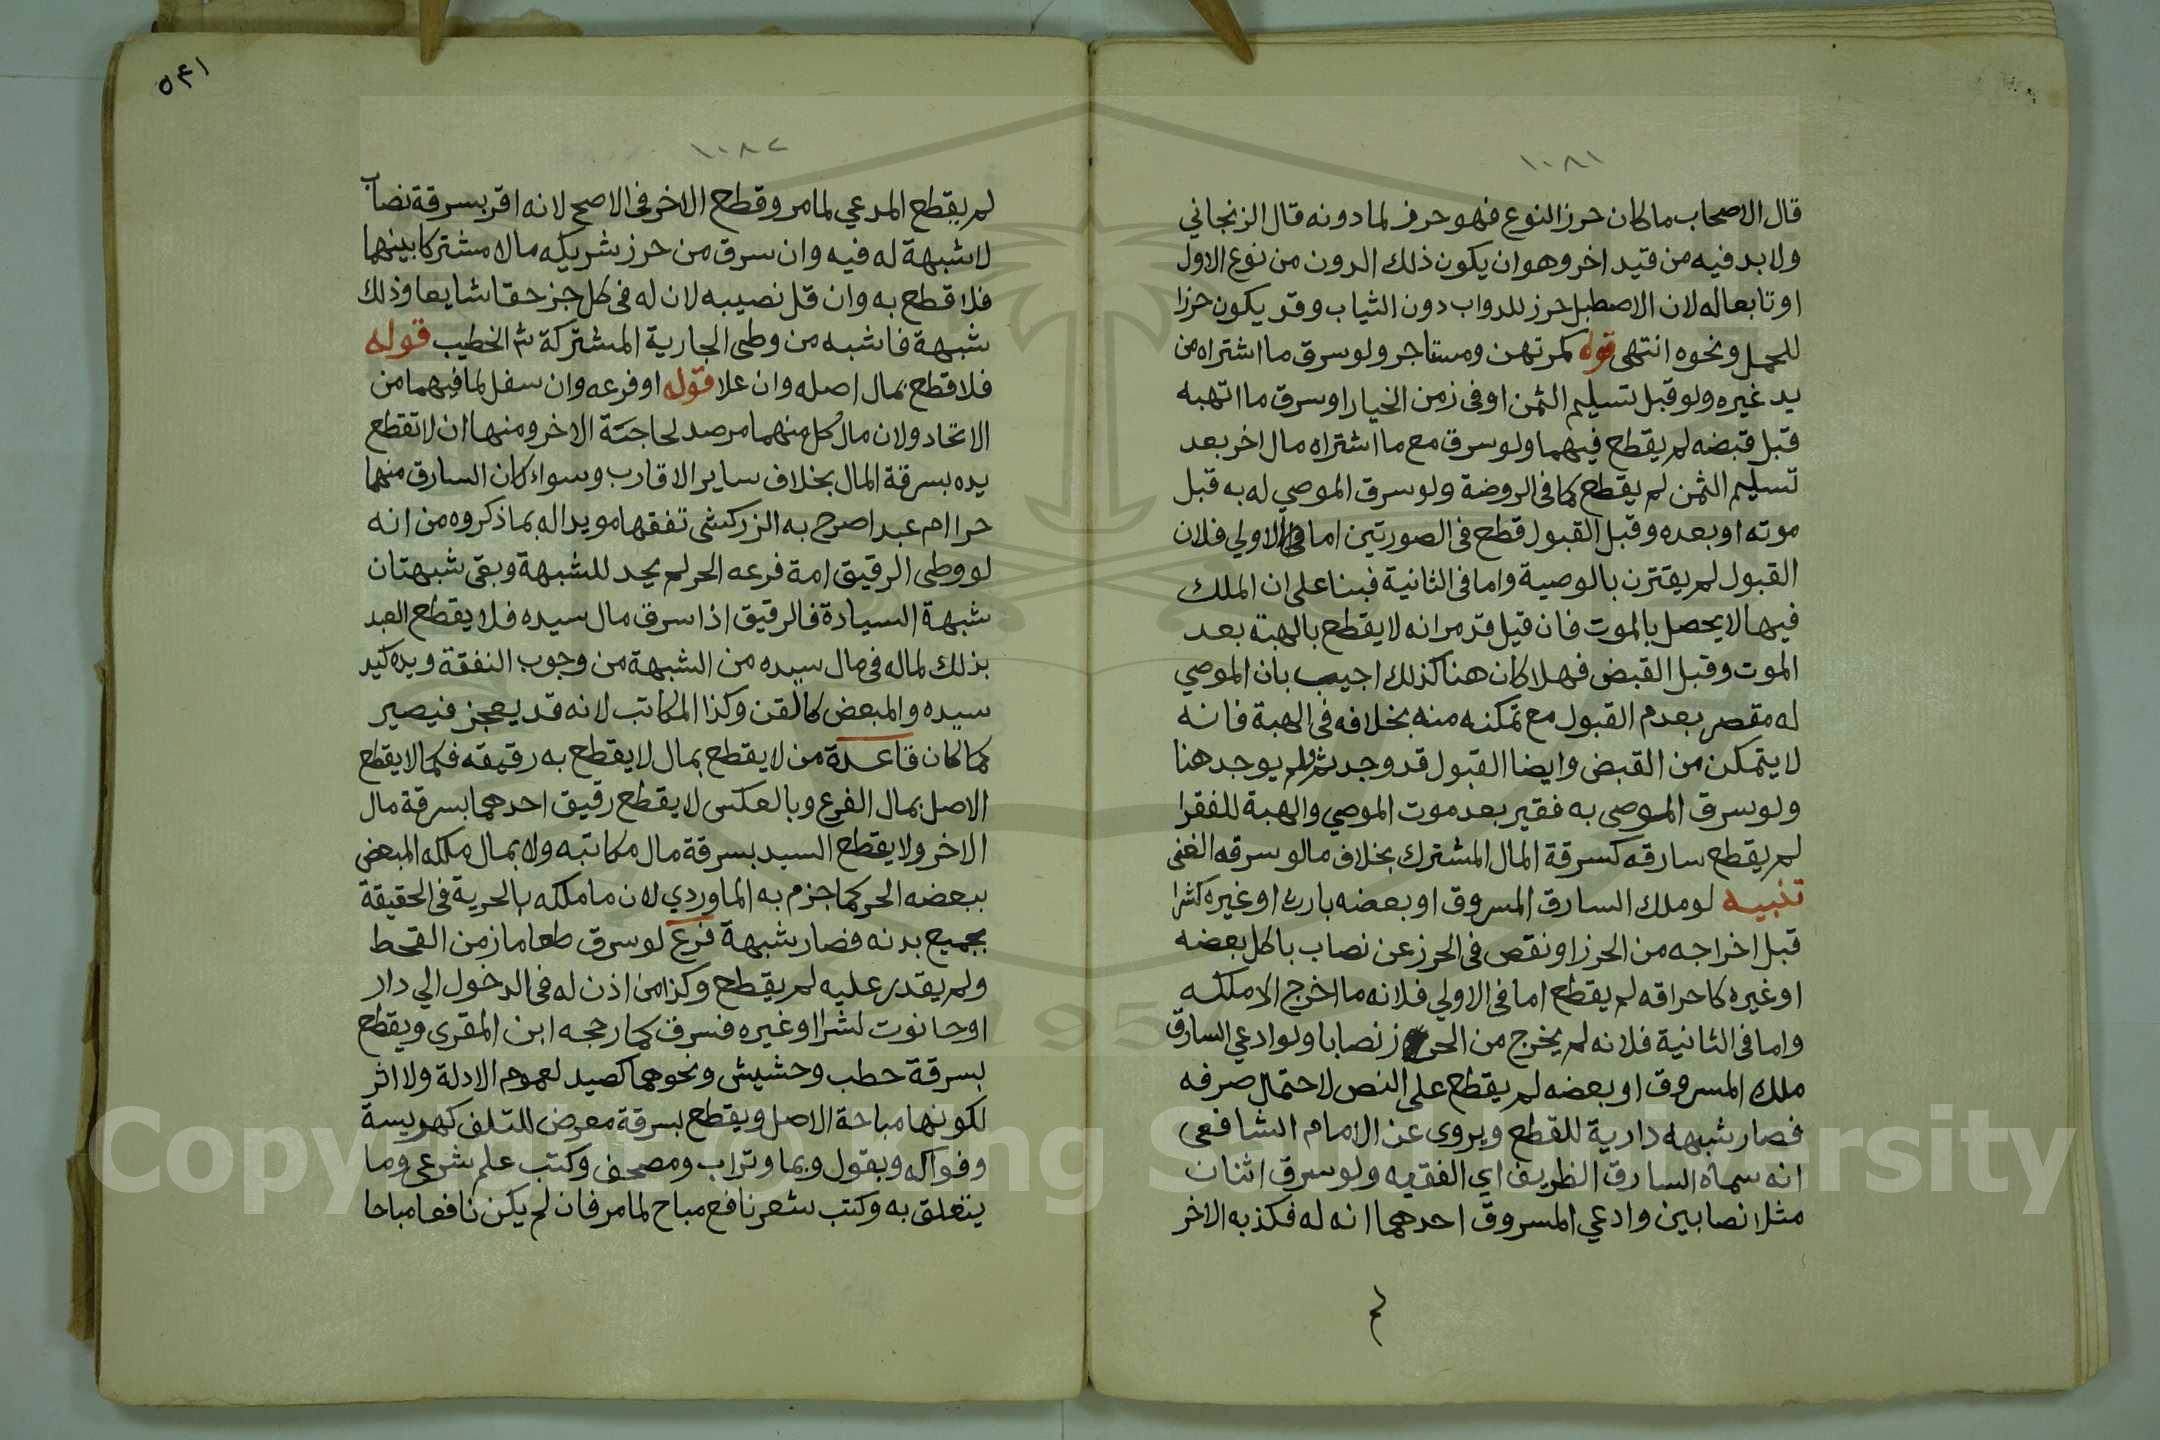 ١٠٨١
قال الاصحاب ما كان حرز النوع فهو حرز لما دونه قال الزنجاني
ولا بد فيه من قيد اخر وهو ان يكون ذلك الدون من نوع الاول
او تابعا له لان الاصطبل حرز للدواب دون الثياب وقد يكون حرزا
للحمل ونحوه انتهى قوله كمرتهن ومستاجر ولو سرق ما اشتراه من
يد غيره ولو قبل تسليم الثمن او في زمن الخيار او سرق ما اتهبه
قبل قبضه لم يقطع فيهما ولو سرق مع ما اشتراه مال اخر بعد
تسليم الثمن لم يقطع كما في الروضة ولو سرق الموصي له به قبل
موته او بعده وقبل القبول قطع في الصورتين اما في الاولي فلان
القبول لم يقترن بالوصية واما في الثانية فبنا على ان الملك
فيها لا يحصل بالموت فان قيل قد مر انه لا يقطع بالهبة بعد
الموت وقبل القبض فهلا كان هنا كذلك اجيب بان الموصي
له مقصر بعدم القبول مع تمكنه منه بخلافه في الهبة فانه
لا يتمكن من القبض وايضا القبول قد وجد ثم ولم يوجد هنا
ولو سرق الموصى به فقير بعد موت الموصي والهبة للفقرا
لم يقطع سارقه كسرقة المال المشترك بخلاف ما لو سرقه الغنى
تنبيه لو ملك السارق المسروق او بعضه بارث او غيره كشرا
قبل اخراجه من الحرز او نقص في الحرز عن نصاب باكل بعضه
او غيره كاحراقه لم يقطع اما في الاولي فلانه ما اخرج الا ملكه
واما في الثانية فلانه لم يخرج من الحرز نصابا ولو ادعي السارق
ملك المسروق او بعضه لم يقطع على النص لاحتمال صرفه
فصار شبهه دارية للقطع ويروى عن الامام الشافعي
انه سماه السارق الظريف اي الفقيه ولو سرق اثنان
مثلا نصابين وادعي المسروق احدهما انه له فكذبه الاخر
لم
٥٤١
١٠٨٢
لم يقطع المدعي لما مر وقطع الاخر في الاصح لانه اقر بسرقة نصاب
لا شبهة له فيه وان سرق من حرز شريكه مالا مشتركا بينهما
فلا قطع به وان قل نصيبه لان له في كل جز حقا شايعا وذلك
شبهة فاشبه من وطى الجارية المشتركة ش الخطيب قوله
فلا قطع بمال اصله وان علا قوله او فرعه وان سفل لما فيهما من
الاتحاد ولان مال كل منهما مرصد لحاجة الاخر ومنها ان لا تقطع
يده بسرقة المال بخلاف ساير الاقارب وسواء كان السارق منهما
حرا ام عبدا صرح به الزركشى تفقها مويدا له بما ذكروه من انه
لو وطى الرقيق امة فرعه الحر لم يحد للشبهة وبقى شبهتان
شبهة السيادة فالرقيق اذا سرق مال سيده فلا يقطع العبد
بذلك لماله في مال سيده من الشبهة من وجوب النفقة ويده كيد
سيده والمبعض كالقن وكذا المكاتب لانه قد يعجز فيصير
كما كان قاعدة من لا يقطع بمال لا يقطع به رقيقه فكما لا يقطع
الاصل بمال الفرع وبالعكس لا يقطع رقيق احدهما بسرقة مال
الاخر ولا يقطع السيد بسرقة مال مكاتبه ولا بمال ملكه المبعض
ببعضه الحر كما جزم به الماوردي لان ما ملكه بالحرية في الحقيقة
بجميع بدنه فصار شبهة فرع لو سرق طعاما زمن القحط
ولم يقدر عليه لم يقطع وكذا من اذن له في الدخول الي دار
او حانوت لشرا او غيره فسرق كما رجحه ابن المقرى ويقطع
بسرقة حطب وحشيش ونحوهما كصيد لعموم الادلة ولا اثر
لكونها مباحة الاصل ويقطع بسرقة معرض للتلف كهريسة
وفواكه وبقول وبما وتراب ومصحف وكتب علم شرعي وما
يتعلق به وكتب شعر نافع مباح لما مر فان لم يكن نافعا مباحا
Copyright © King Saud University
1957